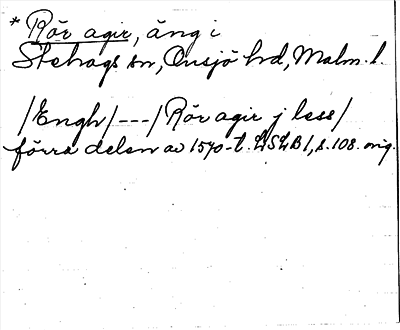 * Rör agir, äng i
Stehags sn, Onsjö hd, Malm. l.
/Engh/---/Rör agir j less/
förra delen av 1570-t. LSLB 1, s. 108. orig.